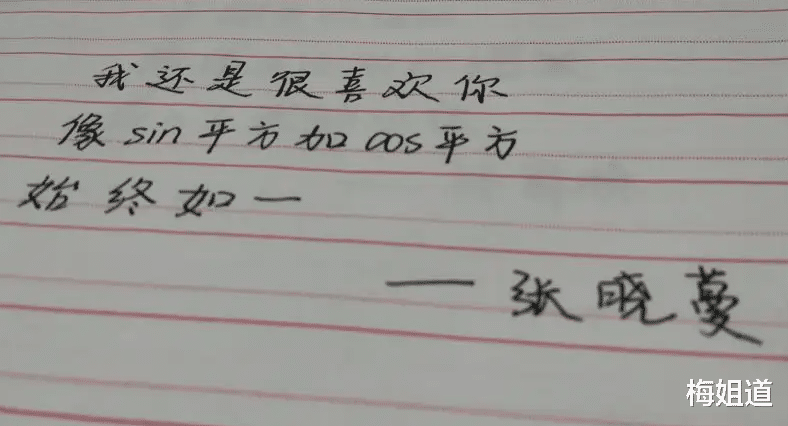 我还是很喜欢你
像sin平方加cos平方
始终如一
——张晓蔓
梅姐道